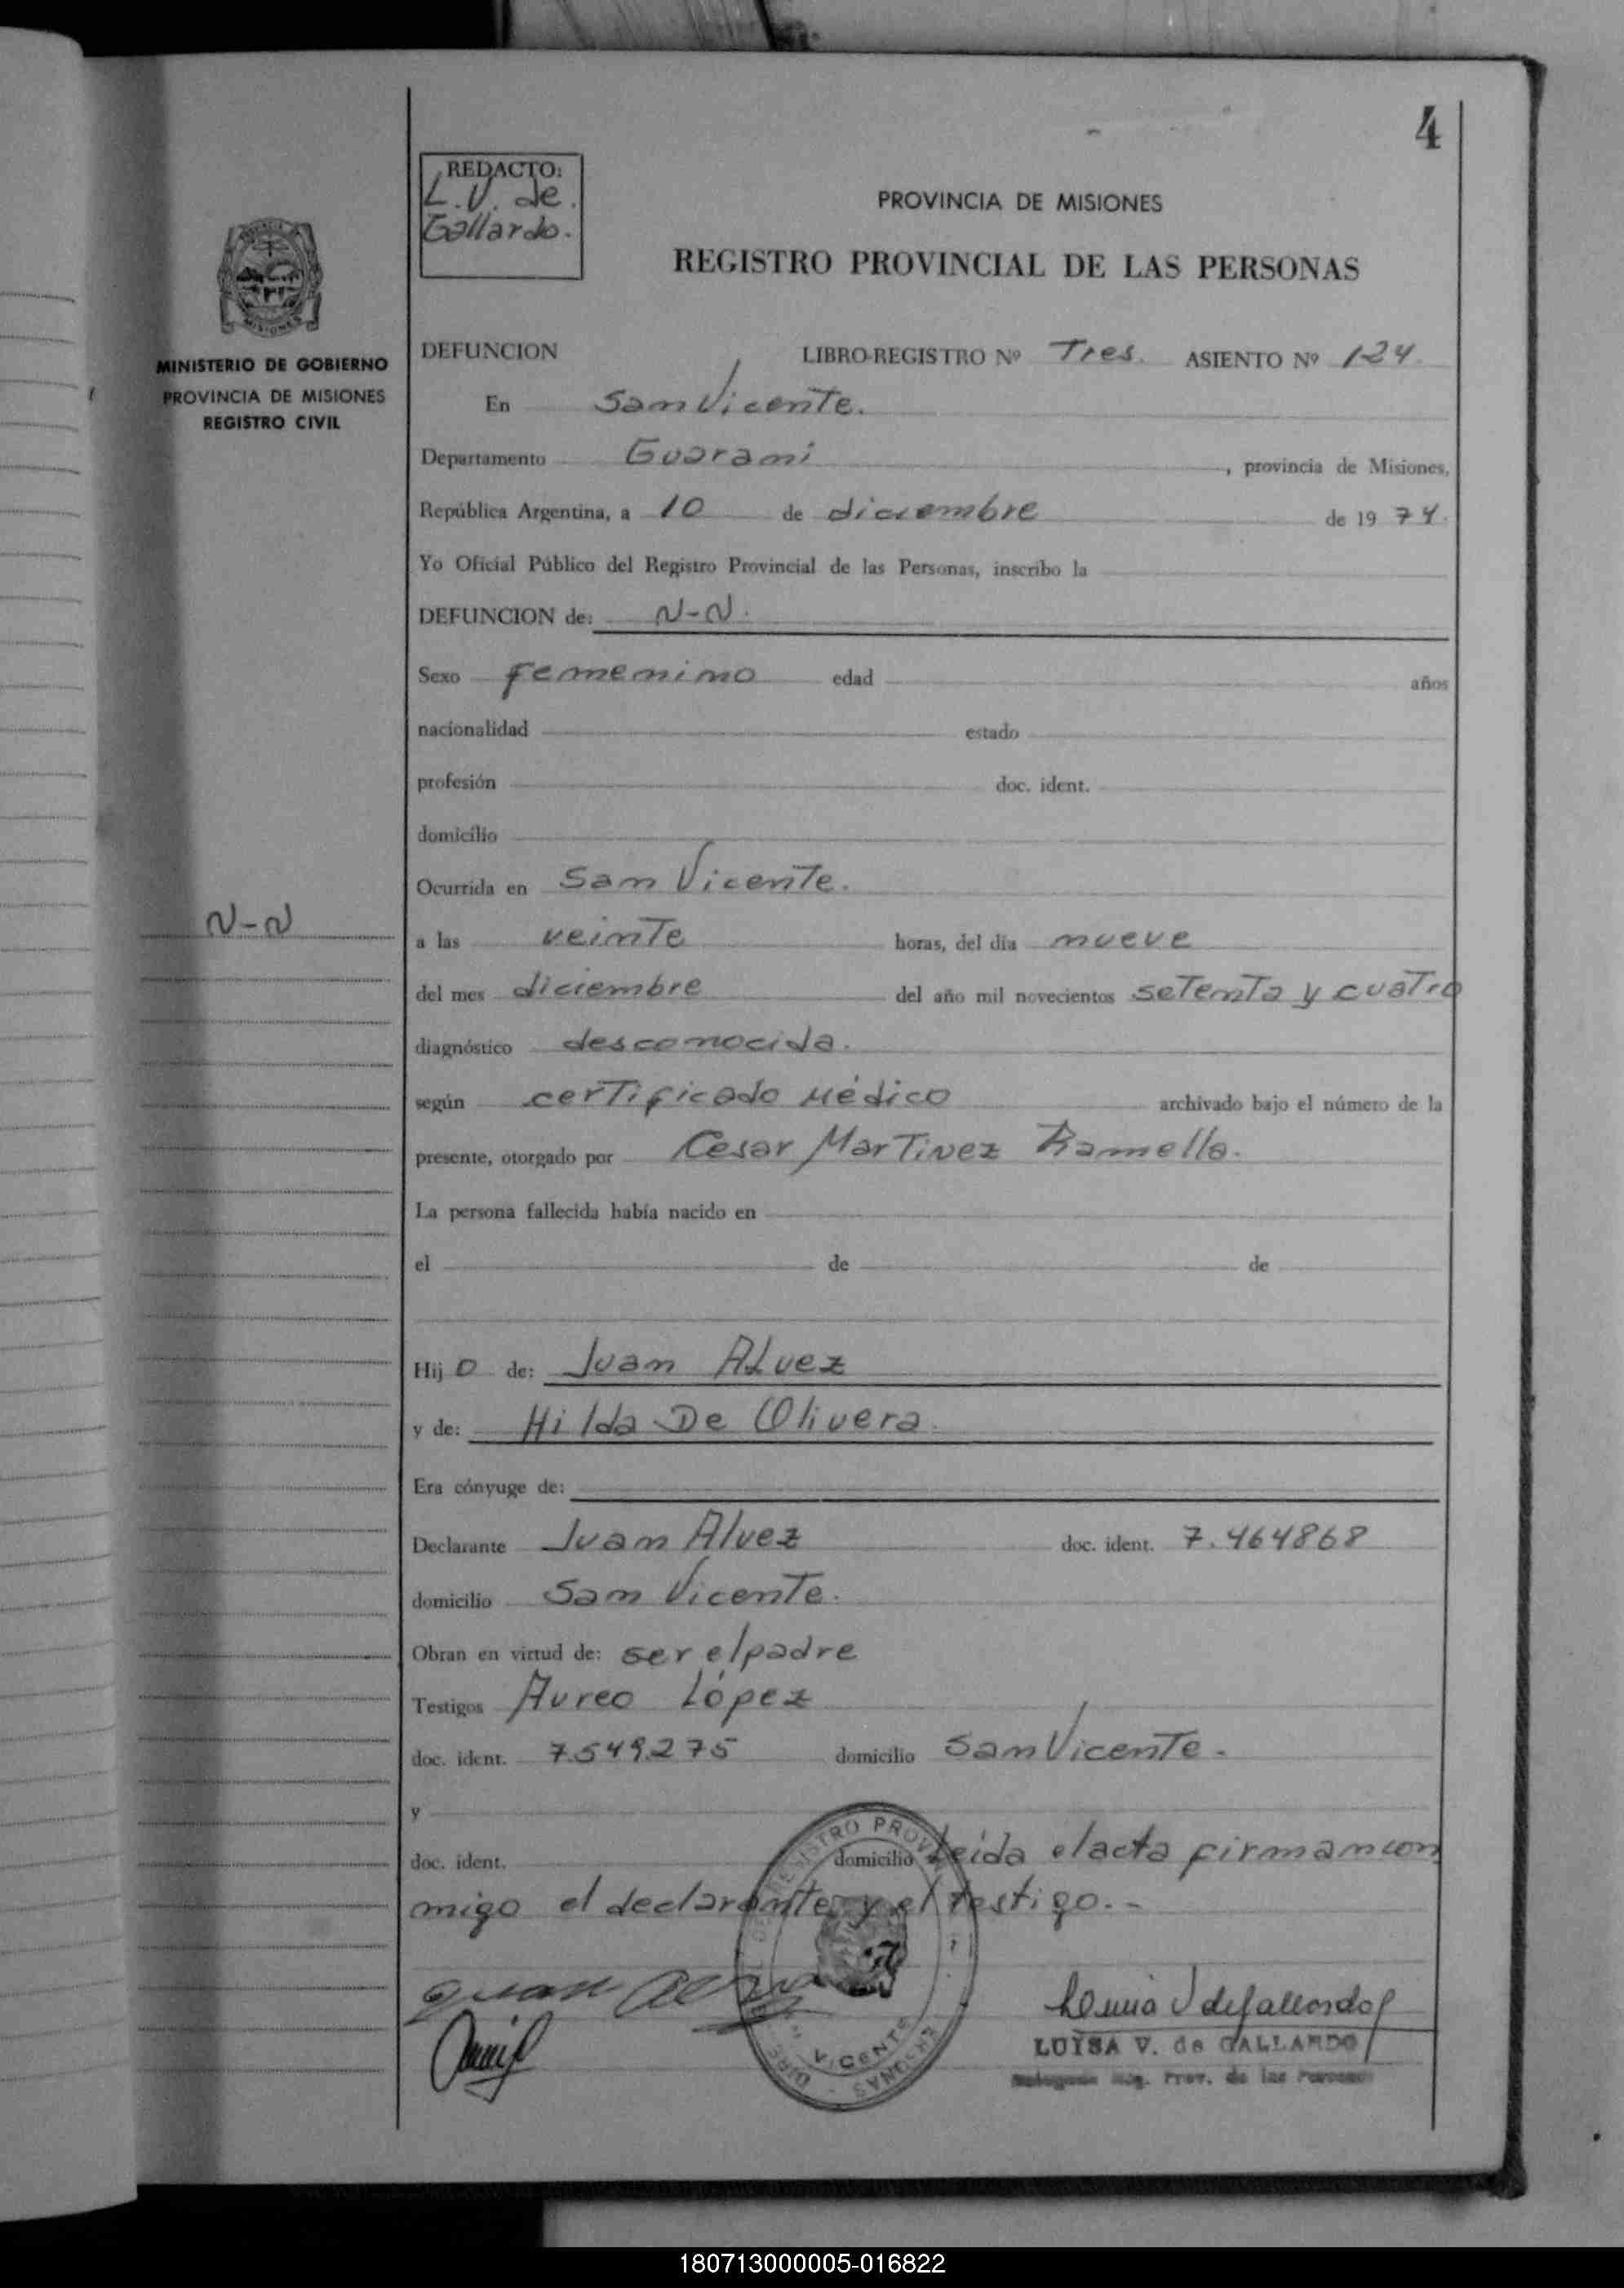 4
REDACTO:
L. V. de.
Gallardo.
PROVINCIA DE MISIONES
REGISTRO PROVINCIAL DE LAS PERSONAS
MISIONES
MINISTERIO DE GOBIERNO
PROVINCIA DE MISIONES
REGISTRO CIVIL
DEFUNCION LIBRO-REGISTRO Nº Tres. ASIENTO Nº 124
En San Vicente.
Departamento Guarani, provincia de Misiones,
República Argentina, a 10 de diciembre de 1974.
Yo Oficial Público del Registro Provincial de las Personas, inscribo la
DEFUNCION de: N-N.
Sexo femenino edad años
nacionalidad estado
profesión doc. ident.
domicilio
Ocurrida en San Vicente.
N-N
a las veinte horas, del día nueve
del mes diciembre del año mil novecientos setenta y cuatro
diagnóstico desconocida.
según certificado Médico archivado bajo el número de la
presente, otorgado por Cesar Martinez Ramella.
La persona fallecida había nacido en
el de de
Hijo de: Juan Alvez
y de: Hilda De Olivera.
Era cónyuge de:
Declarante Juan Alvez doc. ident. 7.464868
domicilio San Vicente.
Obran en virtud de: ser el padre
Testigos Aureo López
doc. ident. 7.549.275 domicilio San Vicente.
y
doc. ident. domicilio Leida el acta firman con
migo el declarante y el testigo.-
VICENTE
LUISA V. de GALLARDO
Reg. Prov. de las Personas
180713000005-016822